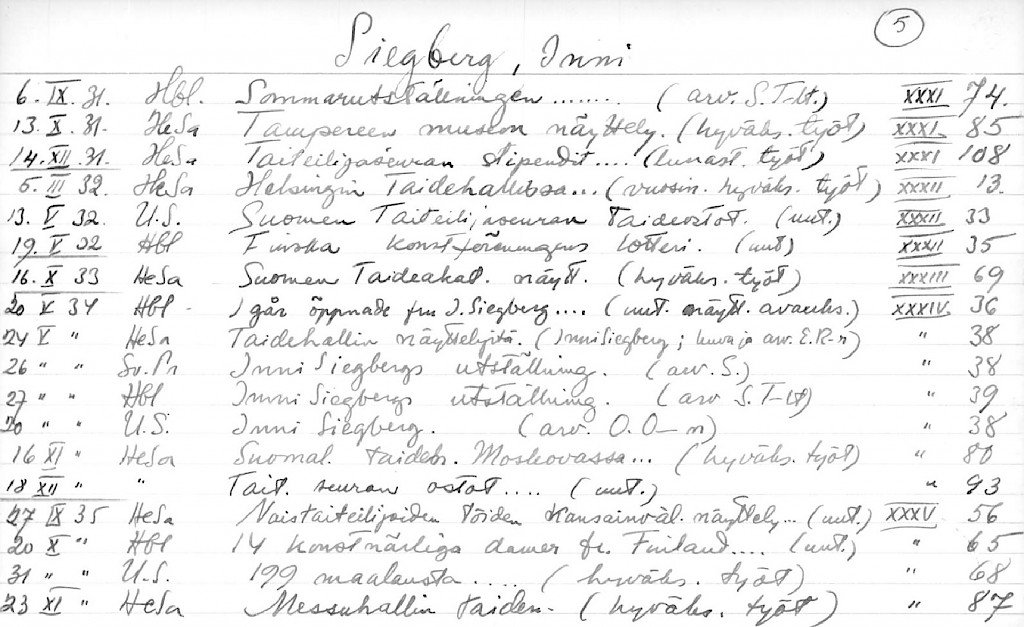 5
Siegberg, Inni
6. IX. 31. Hbl. Sommarutställningen ....... (arv. S.T-lt.) XXXI 74.
13. X. 31. HeSa Tampereen museon näyttely. (hyväks. työt) XXXI. 85
14. XII. 31. HeSa Taiteilijaseuran stipendit.... (lunast. työt) XXXI 108
5. III 32. HeSa Helsingin Taidehallissa... (vuosin. hyväks. työt) XXXII 13.
13. V 32. U.S. Suomen Taiteilijaseuran taideostot. (uut.) XXXII 33
19. V 32 Hbl Finska Konstföreningens lotteri. (uut) XXXII 35
16. X 33 HeSa Suomen Taideakat. näyt. (hyväks. työt) XXXIII 69
20 V 34 Hbl - I går öppnade fru I. Siegberg.... (uut. näytt. avauks.) XXXIV. 36
24 V " HeSa Taidehallin näyttelyitä. (Inni Siegberg; kuva ja arv. E.R-r) " 38
26 " " Sv.Pr Inni Siegbergs utställning. (arv. S.) " 38
27 " " Hbl Inni Siegbergs utställning. (arv S.T-lt) " 39
20 " " U.S. Inni Siegberg. (arv. O.O-n) " 38
16 XI " HeSa Suomal. taidett. Moskovassa... (hyväks. työt) " 80
18 XII " " Tait. seuran ostot.... (uut.) " 93
27 IX 35 HeSa Naistaiteilijoiden töiden Kansainväl. näyttely... (uut.) XXXV 56
20 X " Hbl 14 konstnärliga damer fr. Finland.... (uut.) " 65
31 " " U.S. 199 maalausta ..... (hyväks. työt) " 68
23 XI " HeSa Messuhallin taiden. (hyväks. työt) " 87